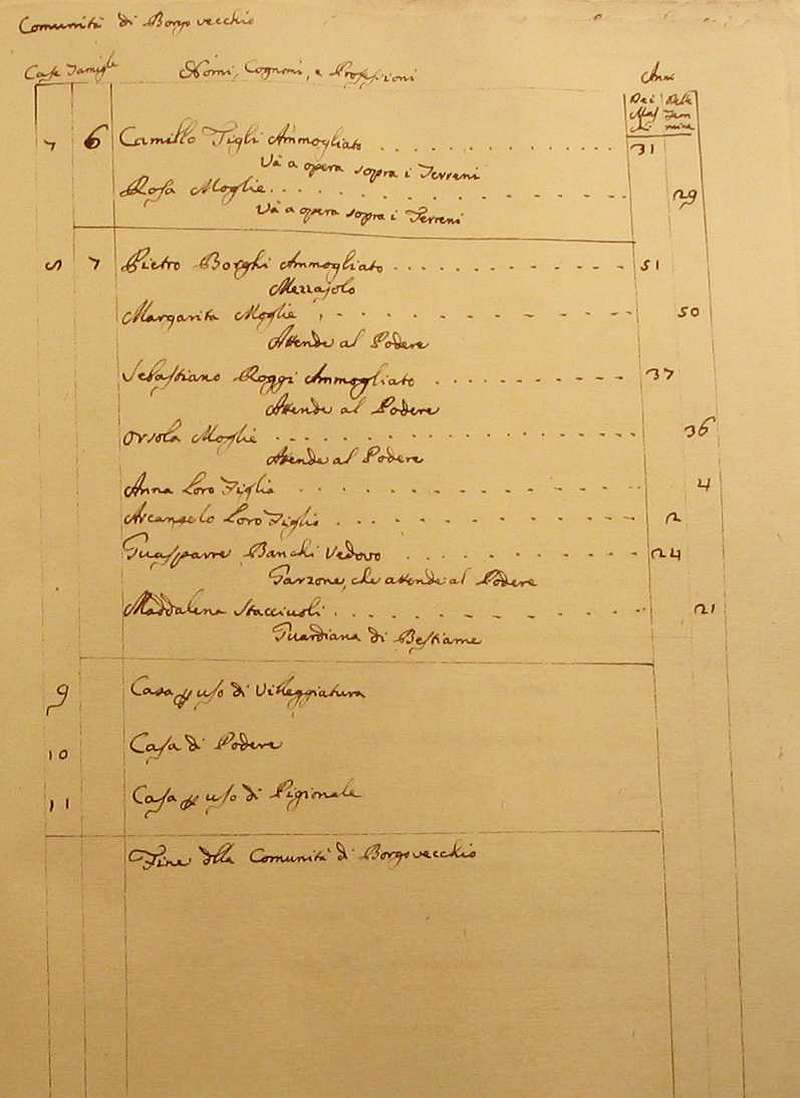 Comunità di Borgo vecchio
Case Famiglie Nomi, Cognomi, e Professioni Anni
Dei Maschi Delle Femmine
7 6 Camillo Tigli Ammogliato 31
Và a opera sopra i Terreni
Rosa Moglie 29
Và a opera sopra i Terreni
7 Pietro Borghi Ammogliato 51
Mezzajolo
Margarita Moglie 50
Attende al Podere
Sebastiano Roggi Ammogliato 37
Attende al Podere
Orsola Moglie 36
Attende al Podere
Anna Loro Figlia 4
Arcangelo Loro Figlio 2
Guasparre Banchi Vedovo 24
Garzone, che attende al Podere
Maddalena Stacciuoli 21
Guardiana di Bestiame
9 Casa p uso di Villeggiatura
10 Casa di Podere
11 Casa p uso di Pigionale
Fine della Comunità di Borgovecchio